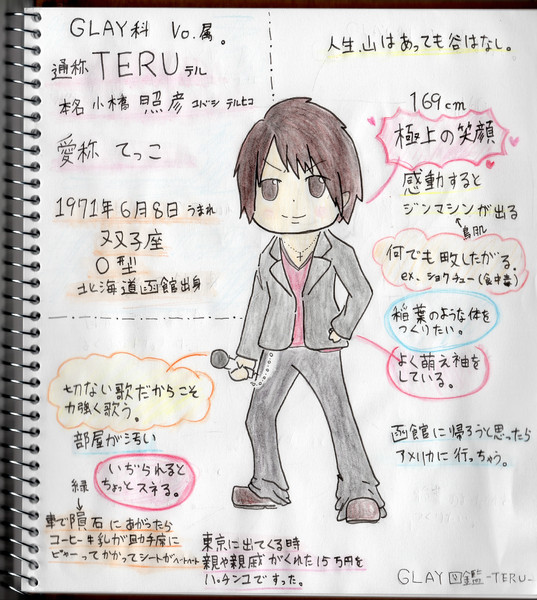 GLAY科 Vo.属。
通称 TERU テル
本名 小橋 照彦 コバシ テルヒコ
愛称 てっこ
1971年6月8日 うまれ
双子座
O型
北海道函館出身
人生、山はあっても谷はなし。
169cm
極上の笑顔
感動すると
ジンマシンが出る
鳥肌
何でも略したがる。
ex、ショクチュー(食中毒)
稲葉のような体を
つくりたい。
よく萌え袖を
している。
函館に帰ろうと思ったら
アメリカに行っちゃう。
切ない歌だからこそ
力強く歌う。
部屋が汚い
いぢられると
ちょっとスネる。
縁
車で隕石にあがったら
コーヒー牛乳が助手席に
ビャーってかかってシートが
東京に出てくる時
親や親戚がくれた15万円を
パチンコですった。
GLAY図鑑 -TERU-